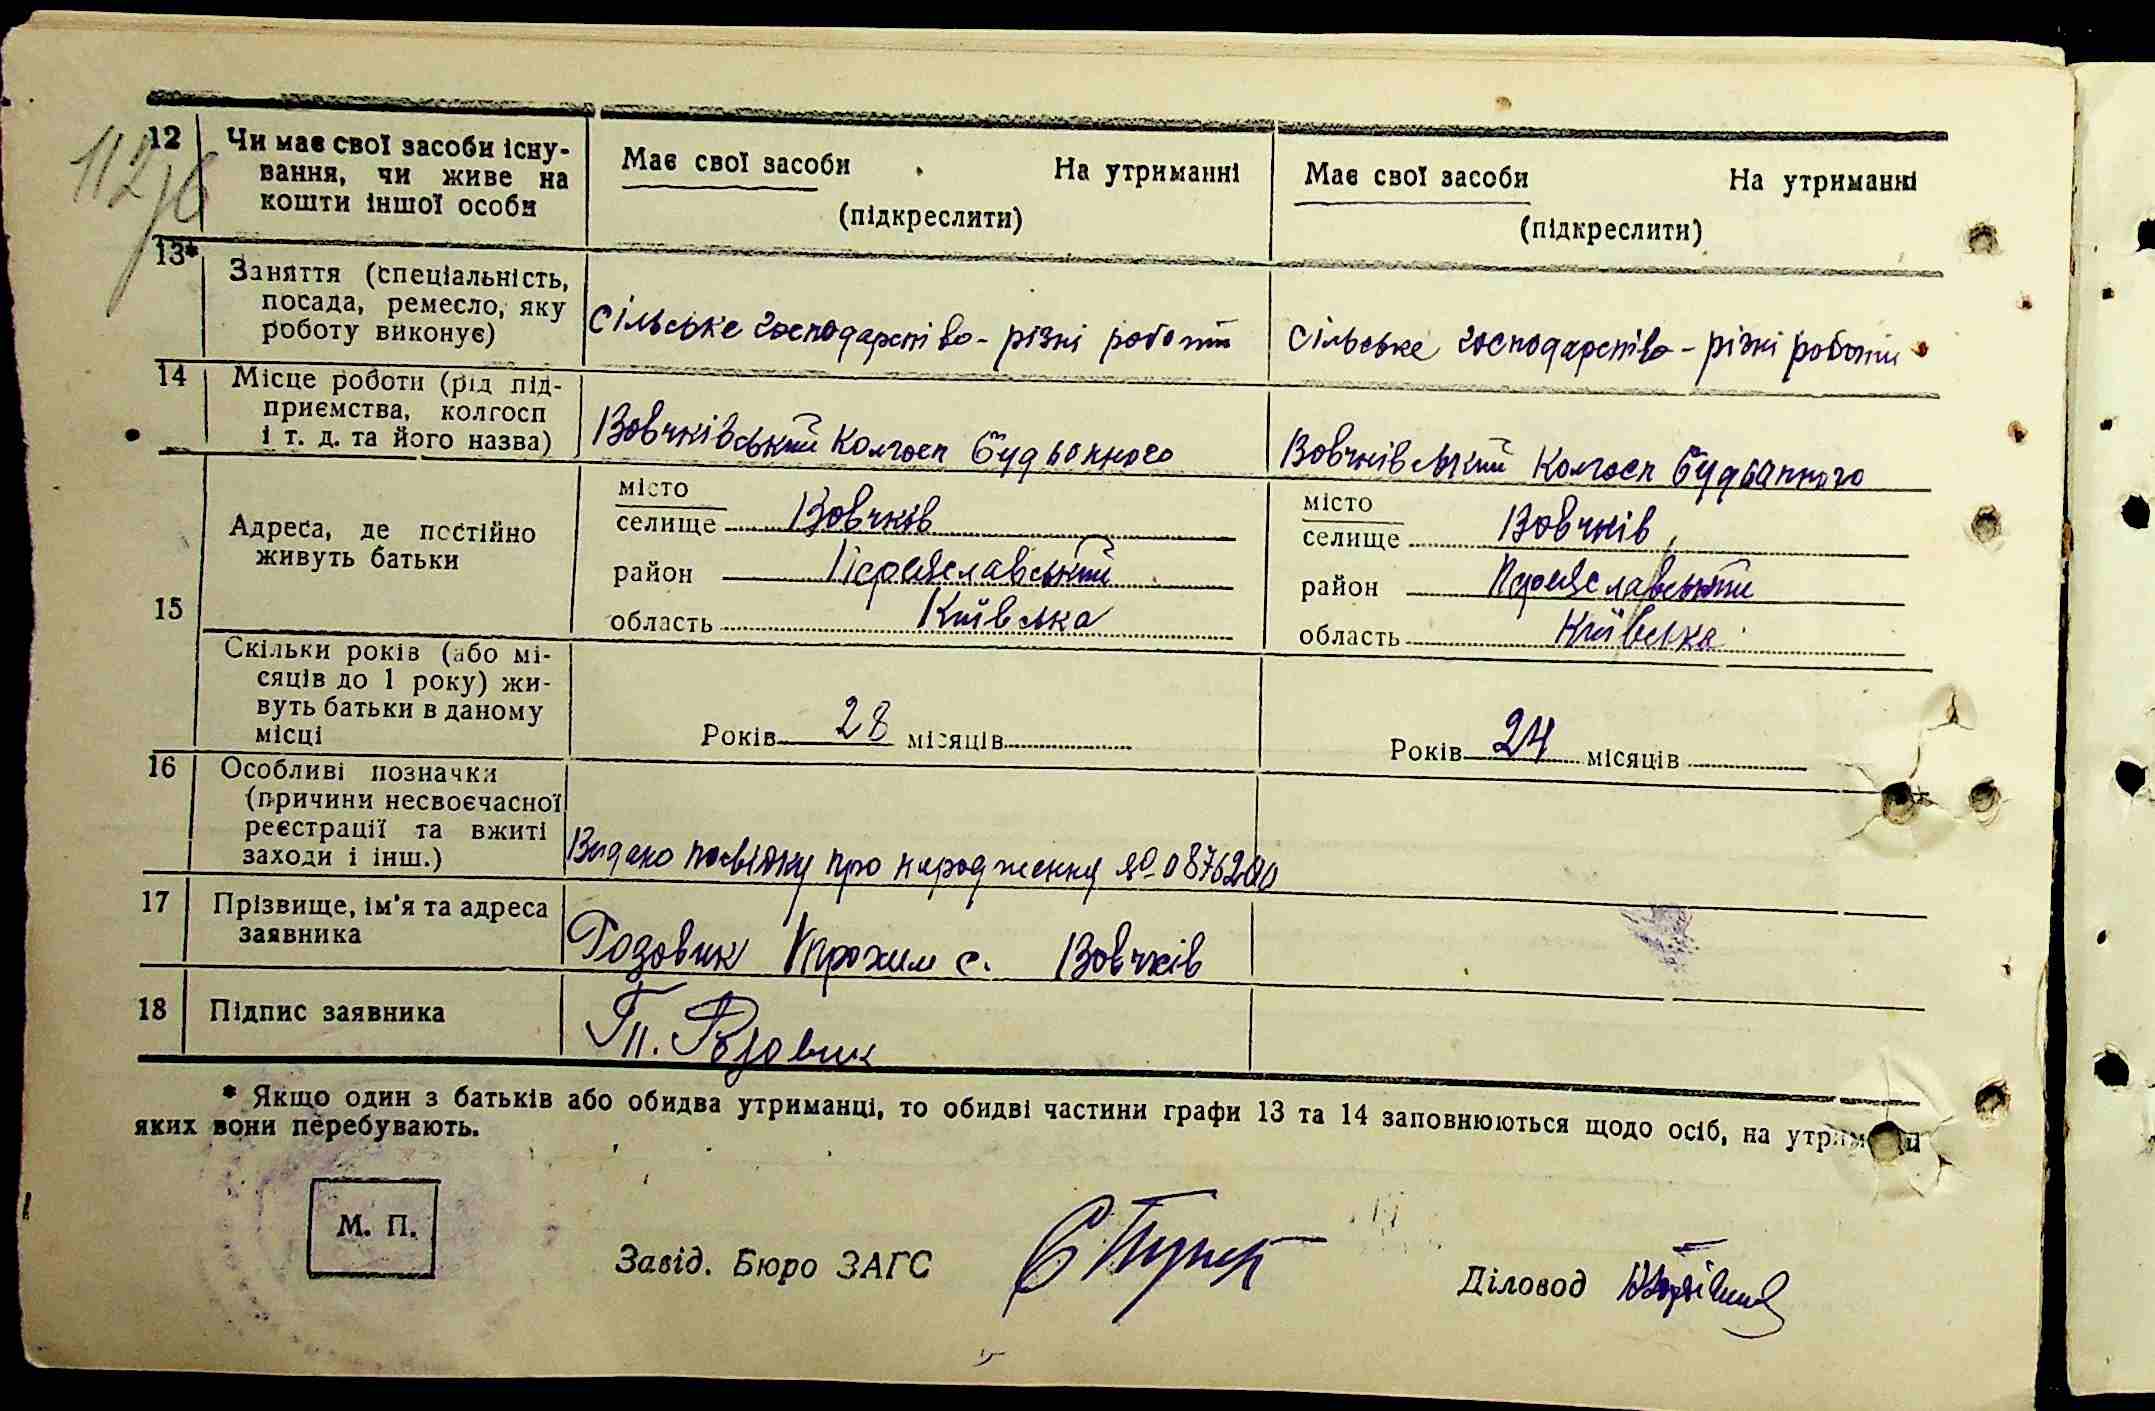 112/б
12 Чи має свої засоби існу-
вання, чи живе на
кошти іншої особи
Має свої засоби На утриманні
(підкреслити)
Має свої засоби На утриманні
(підкреслити)
13* Заняття (спеціальність,
посада, ремесло, яку
роботу виконує)
Сільське господарство - різні роботи
Сільське господарство - різні роботи
14 Місце роботи (рід під-
приємства, колгосп
і т. д. та його назва)
Вовчківський колгосп Будьонного
Вовчківський колгосп Будьонного
15 Адреса, де постійно
живуть батьки
місто
селище Вовчків
район Переяславський
область Київська
місто
селище Вовчків
район Переяславський
область Київська
Скільки років (або мі-
сяців до 1 року) жи-
вуть батьки в даному
місці
Років 28 місяців
Років 24 місяців
16 Особливі позначки
(причини несвоєчасної
реєстрації та вжиті
заходи і інш.)
Видано посвідку про народження №
17 Прізвище, ім'я та адреса
заявника
Розовик Трохим с. Вовчків
18 Підпис заявника
Розовик
* Якщо один з батьків або обидва утриманці, то обидві частини графи 13 та 14 заповнюються щодо осіб, на утриманні
яких вони перебувають.
М. П.
Завід. Бюро ЗАГС
Діловод